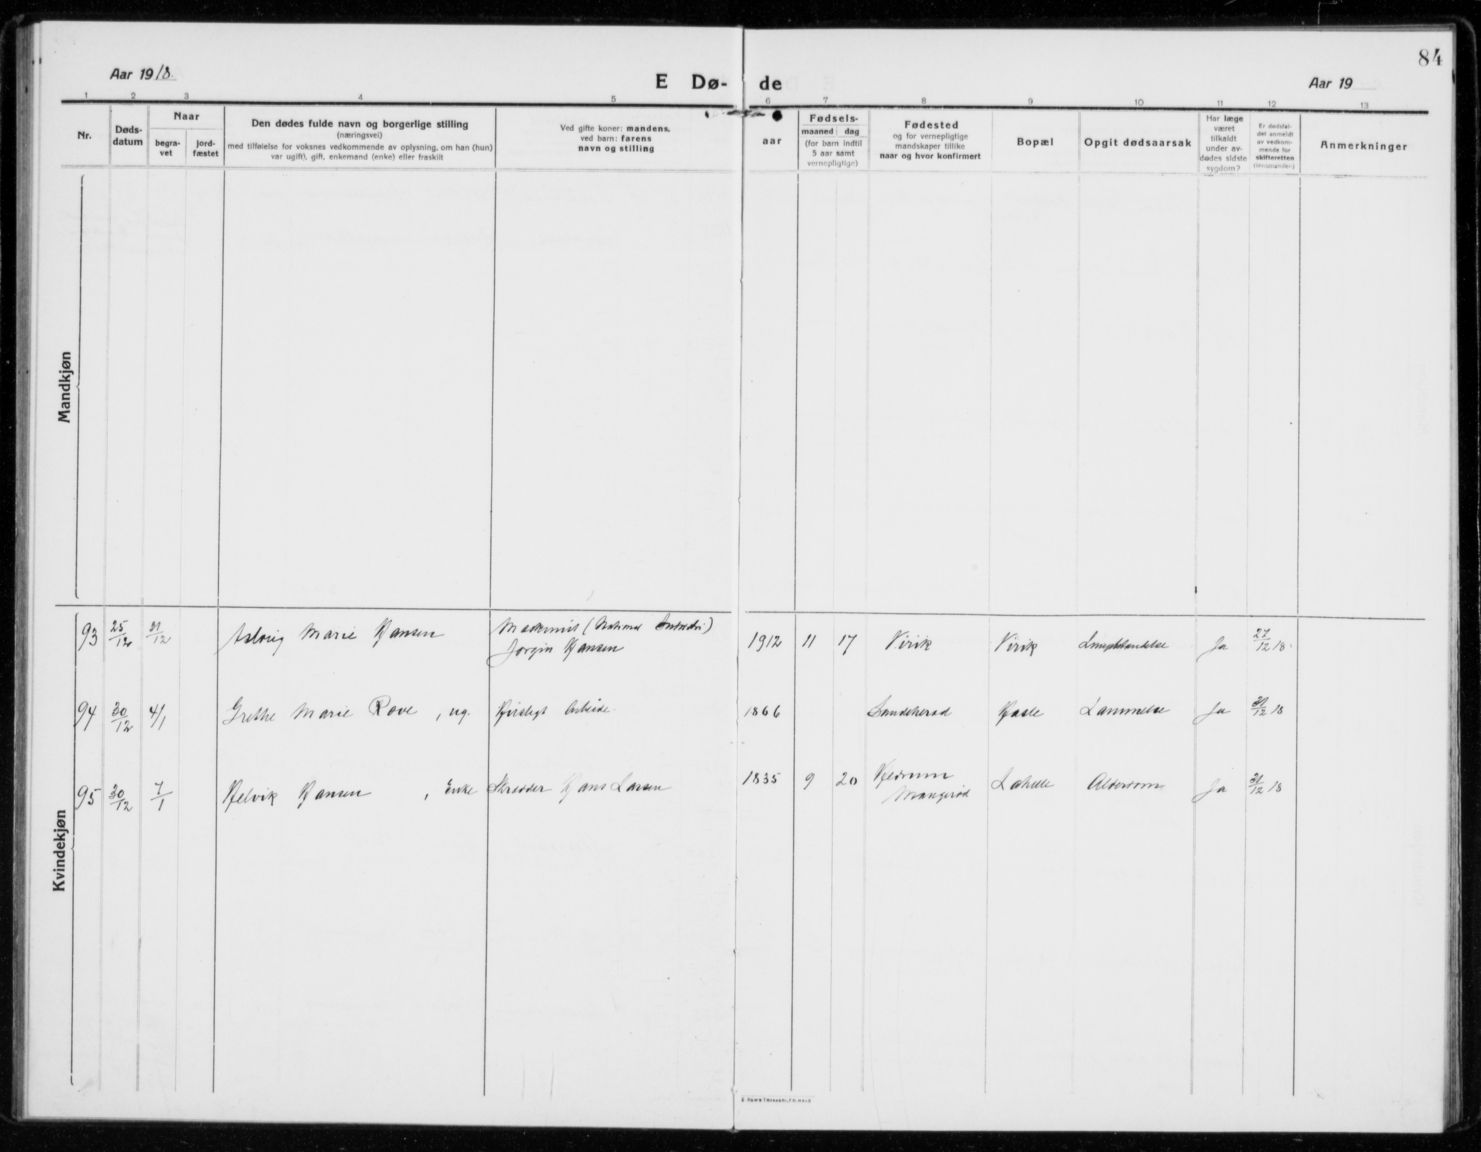 84
Aar 1918.
E Dø-de
Aar 19
1 2 3 4 5 6 7 8 9 10 11 12 13
Nr.
Døds-
datum
Naar
begra-
vet
jord-
fæstet
Den dødes fulde navn og borgerlige stilling
(næringsvei)
med tilføielse for voksnes vedkommende av oplysning, om han (hun)
var ugift), gift, enkemand (enke) eller fraskilt
Ved gifte koner: mandens,
ved barn: farens
navn og stilling
Fødsels-
aar
maaned dag
(for barn indtil
5 aar samt
vernepligtige)
Fødested
og for vernepligtige
mandskaper tillike
naar og hvor konfirmert
Bopæl
Opgit dødsaarsak
Har læge
været
tilkaldt
under av-
dødes sidste
sygdom?
Er dødsfal-
det anmeldt
av vedkom-
mende for
skifteretten
(lensmanden)
Anmerkninger
Mandkjøn
Kvindekjøn
93 25/12 31/12 Aslaug Marie Hansen
Jørgen Hansen
1912 11 17 Virik Virik Ja 27/12 18.
94 30/12 4/1 Grethe Marie Rove, ug. Husligt Arbeide. 1866 Sandeherad Hasle Lammelse Ja 31/12 18
95 30/12 7/1 Helvik Hansen, Enke Skrædder Hans Larsen 1835 9 20 Hedrum
Lahelle Alderdom Ja 31/12 18